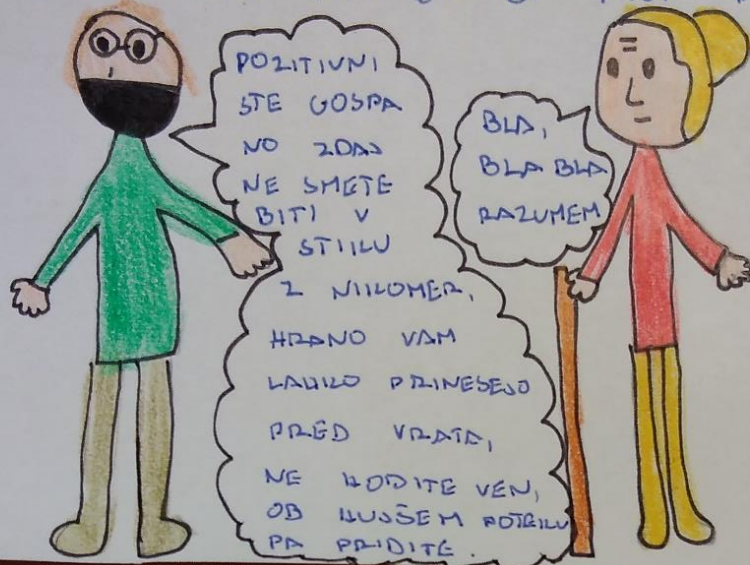 POZITIVNI
STE GOSPA
NO ZDAJ
NE SMETE
BITI V
STIKU
Z NIKOMER,
HRANO VAM
LAHKO PRINESEJO
PRED VRATA,
NE HODITE VEN,
OB HUJŠEM POTEKU
PA PRIDITE.
BLA,
BLA BLA
RAZUMEM